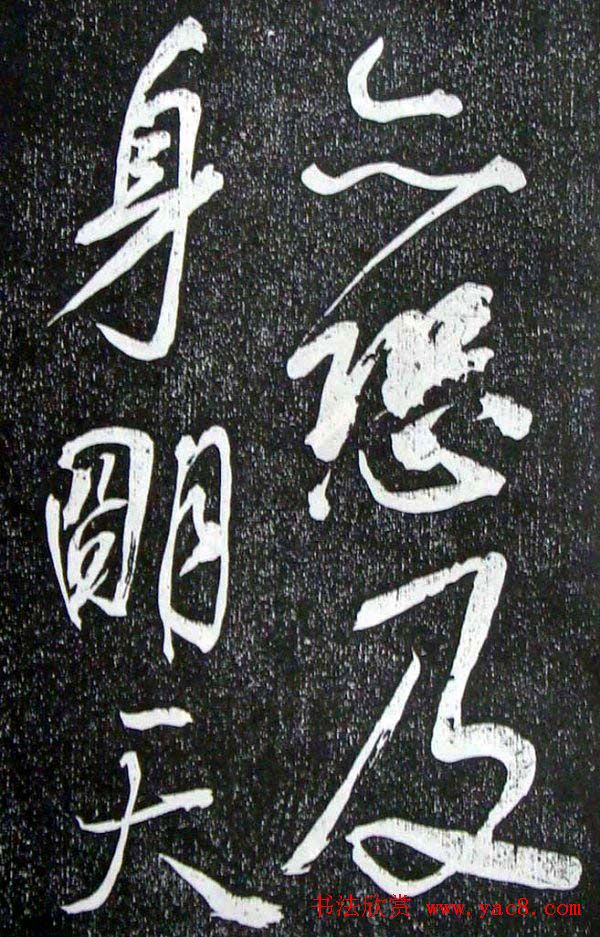 今恐及
身朙天
书法欣赏 www.yac8.com